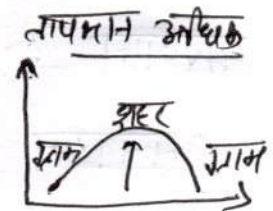 तापमान अधिक
शहर
ग्राम ग्राम